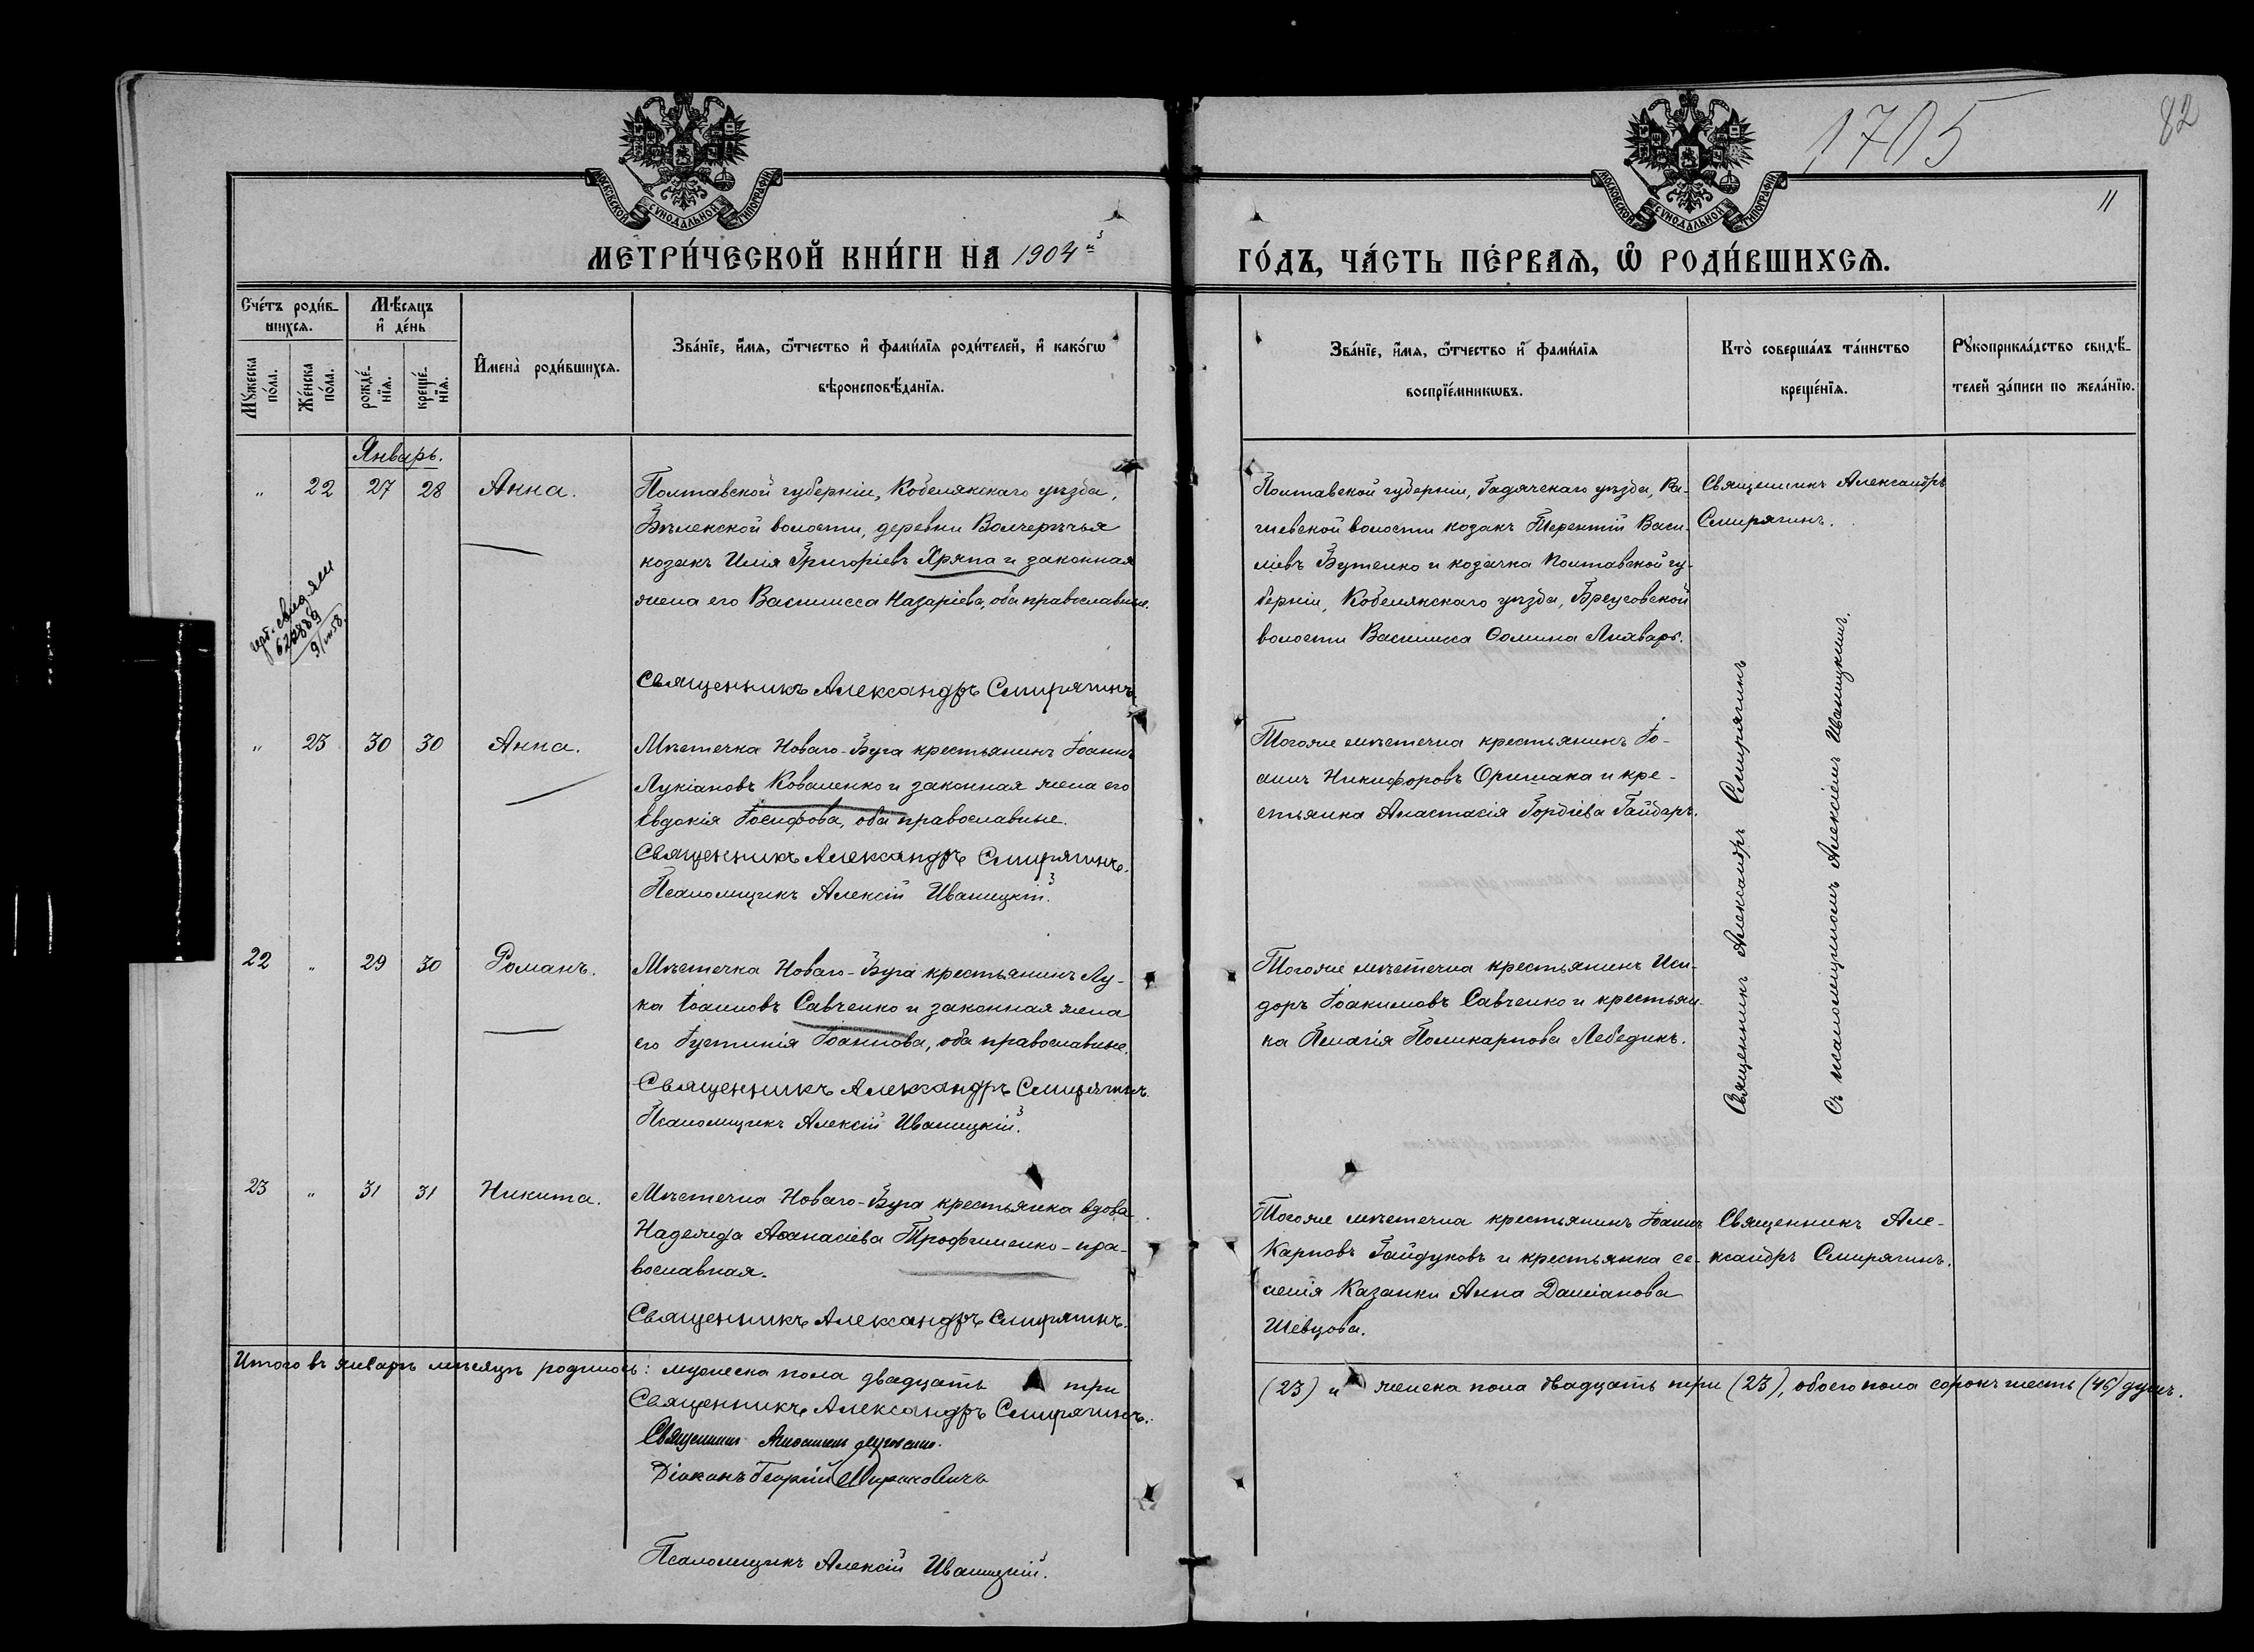 1705
82
11
МОСКОВСКОЙ СѴНОДАЛЬНОЙ ТИПОГРАФІИ
МОСКОВСКОЙ СѴНОДАЛЬНОЙ ТИПОГРАФІИ
МЕТРИ́ЧЕСКОЙ КНИ́ГИ НА 1904й
ГО́ДЪ, ЧА́СТЬ ПЕ́РВАѦ, Ѡ҆ РОДИ́ВШИХСѦ.
Сче́тъ роди́в-
шихсѧ.
Мѣ́сѧцъ
и҆ де́нь
Мꙋ́жеска по́ла.
Же́нска по́ла.
рожде́-нїѧ.
креще́-нїѧ.
И҆мена̀ роди́вшихсѧ.
Зва́нїе, и҆́мѧ, ѻ҆́тчество и҆ фами́лїѧ роди́телей, и҆ како́гѡ
вѣроисповѣ́данїѧ.
Зва́нїе, и҆́мѧ, ѻ҆́тчество и҆ фами́лїѧ
воспрїе́мникѡвъ.
Кто̀ соверша́лъ та́инство
креще́нїѧ.
Рꙋкоприкла́дство свидѣ́-
телей за́писи по жела́нїю.
Январь.
" 22 27 28 Анна.
Полтавской губерніи, Кобелякскаго уѣзда,
Бѣлекской волости, деревни Волчерѣчья
козакъ Илія Григоріевъ Хряпа и законная
жена его Василисса Назаріева, оба православные.
Священникъ Александръ Смирягинъ.
Полтавской губерніи, Гадячскаго уѣзда, Ра-
шевской волости козакъ Терентій Васи-
ліевъ Бутенко и козачка Полтавской гу-
берніи, Кобелякскаго уѣзда, Бреусовской
волости Василисса Ѳомина Лихварь.
Священникъ Александръ
Смирягинъ.
622889
" 23 30 30 Анна.
Мѣстечка Новаго-Буга крестьянинъ Іоаннъ
Лукіановъ Коваленко и законная жена его
Евдокія Іосифова, оба православные.
Священникъ Александръ Смирягинъ.
Псаломщикъ Алексій Иваницкій.
Тогоже мѣстечка крестьянинъ Іо-
аннъ Никифоровъ Оришака и кре-
стьянка Анастасія Гордіева Гайдаръ.
Священникъ Александръ Смирягинъ
Съ псаломщикомъ Алексіемъ Иваницкимъ.
22 " 29 30 Романъ.
Мѣстечка Новаго-Буга крестьянинъ Лу-
ка Іоанновъ Савченко и законная жена
его Іустинія Іоаннова, оба православные.
Священникъ Александръ Смирягинъ.
Псаломщикъ Алексій Иваницкій.
Тогоже мѣстечка крестьянинъ Иси-
доръ Іоакимовъ Савченко и крестьян-
ка Пелагія Поликарпова Лебедикъ.
23 " 31 31 Никита.
Мѣстечка Новаго-Буга крестьянка вдова
Надежда Аѳанасіева Трофименко - пра-
вославная.
Священникъ Александръ Смирягинъ.
Тогоже мѣстечка крестьянинъ Іоаннъ
Карповъ Гайдуковъ и крестьянка се-
ленія Казанки Анна Даміанова
Шевцова.
Священникъ Але-
ксандръ Смирягинъ.
Итого въ январѣ мѣсяцѣ родилось: мужеска пола двадцать три
(23) и женска пола двадцать три (23), обоего пола сорокъ шесть (46) душъ.
Священникъ Александръ Смирягинъ.
Священникъ
Діаконъ Георгій
Псаломщикъ Алексій Иваницкій.